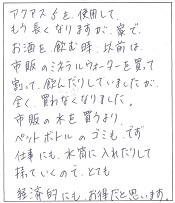 アクアス5を、使用して、
もう長くなりますが、家で、
お酒を飲む時、以前は、
市販のミネラルウォーターを買って
割って、飲んだりしていましたが、
全く、買わなくなりました。
市販の水を買うより、
ペットボトルのゴミも、でず
仕事にも、水筒に入れたりして
持ていくので、とても
経済的にも、お得だと思います。